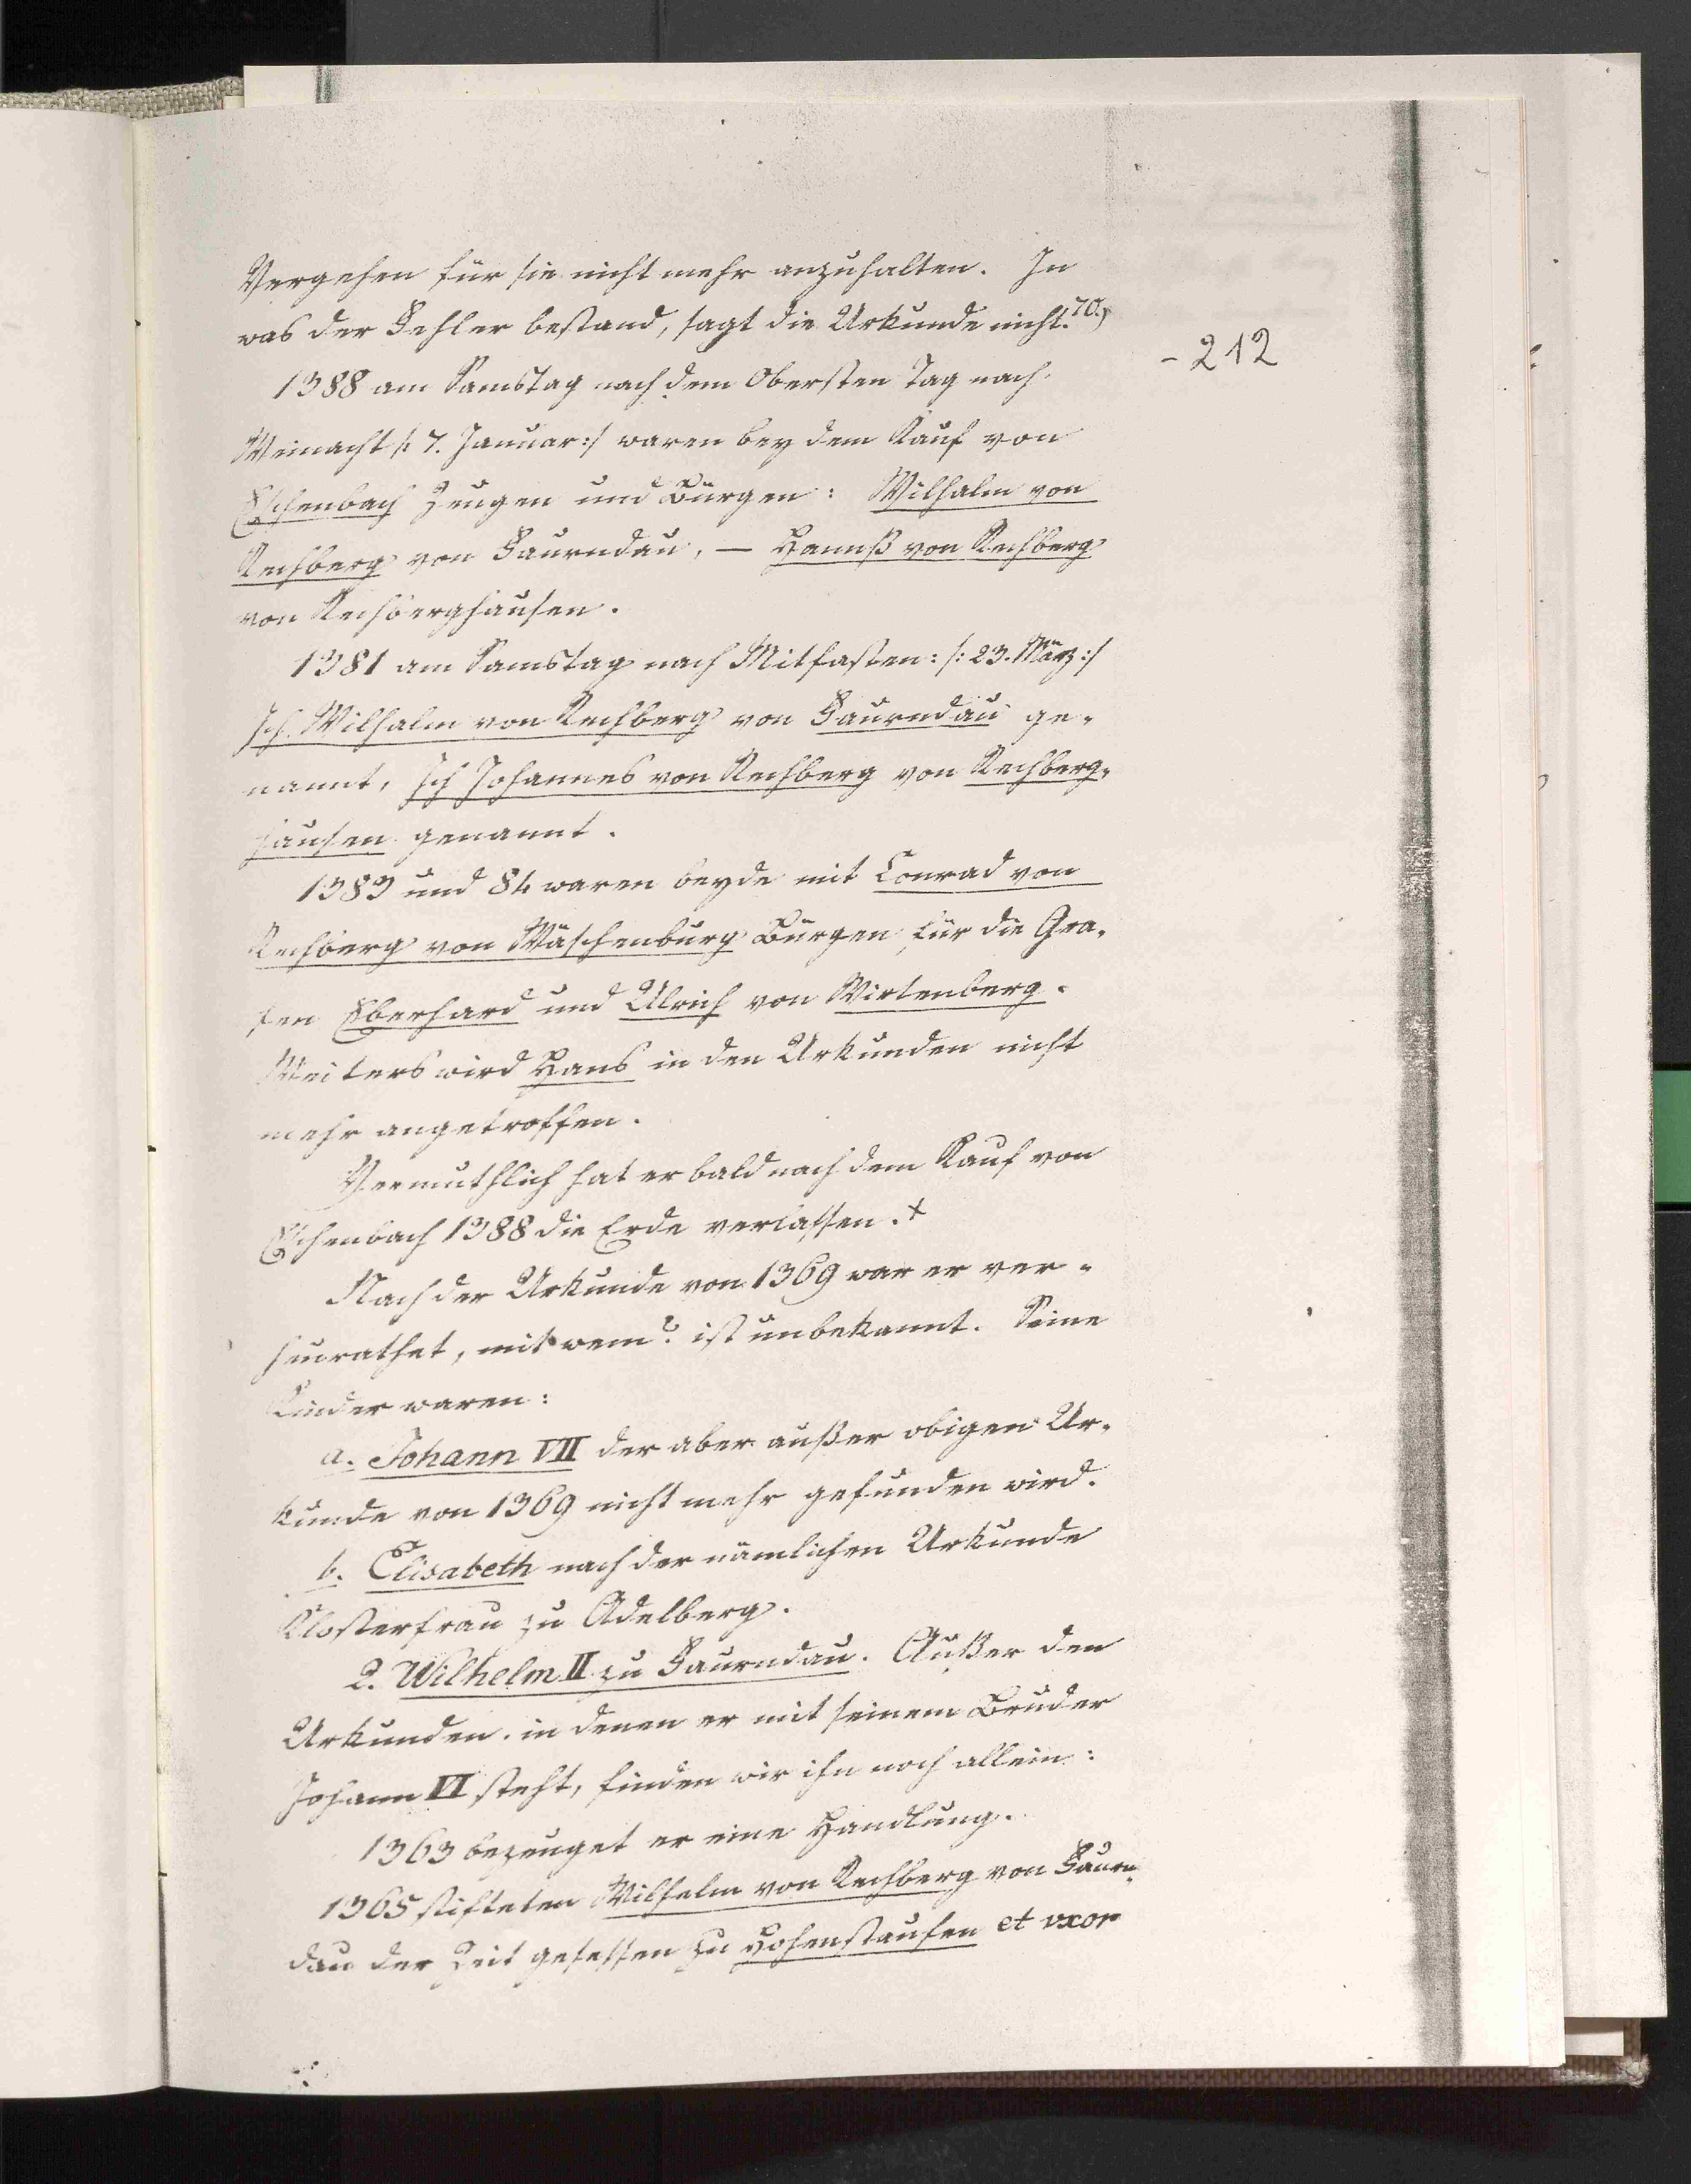 Vergehen für sie nicht mehr anzuhalten. In
was der Fehler bestand, sagt die Urkunde nicht. 70.)
- 212
1388 am Samstag nach dem Obersten Tag nach
Weinacht /: 7. Januar :/ waren bey dem Kauf von
Eschenbach Zeugen und Bürgen: Wilhalm von
Rechberg von Faurndau, — Hannß von Rechberg
von Rechberghausen.
1381 am Samstag nach Mitfasten: /: 23. März :/
Ich Wilhalm von Rechberg von Faurndau ge-
nannt, Ich Johannes von Rechberg von Rechberg-
hausen genannt.
1383 und 84 waren beyde mit Conrad von
Rechberg von Wäschenburg Bürgen für die Gra-
fen Eberhard und Ulrich von Wirtenberg.
Weiters wird Hans in den Urkunden nicht
mehr angetroffen.
Vermuthlich hat er bald nach dem Kauf von
Eschenbach 1388 die Erde verlassen. x
Nach der Urkunde von 1369 war er ver-
heurathet, mit wem? ist unbekannt. Seine
Kinder waren:
a. Johann VII der aber außer obigen Ur-
kunde von 1369 nicht mehr gefunden wird.
b. Elisabeth nach der nämlichen Urkunde
Klosterfrau zu Adelberg.
2. Wilhelm II zu Faurndau. Außer den
Urkunden, in denen er mit seinem Bruder
Johann VI steht, finden wir ihn noch allein:
1363 bezeuget er eine Handlung.
1365 stifteten Wilhelm von Rechberg von Faurn-
dau der Zeit gesessen zu Hohenstaufen et vxor